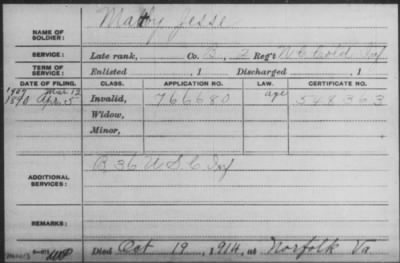 Mabry Jesse
NAME OF SOLDIER:
SERVICE: Late rank, Co. B, 2 Reg't N C Cold Inf
TERM OF SERVICE: Enlisted , 1 Discharged , 1
DATE OF FILING. CLASS. APPLICATION NO. LAW. CERTIFICATE NO.
1907 Mar 12 age
1890 Apr 5 Invalid, 766680 548363
Widow,
Minor,
ADDITIONAL SERVICES: B 36 U S C Inf
REMARKS:
Died Oct 19, 1914, at Norfolk Va